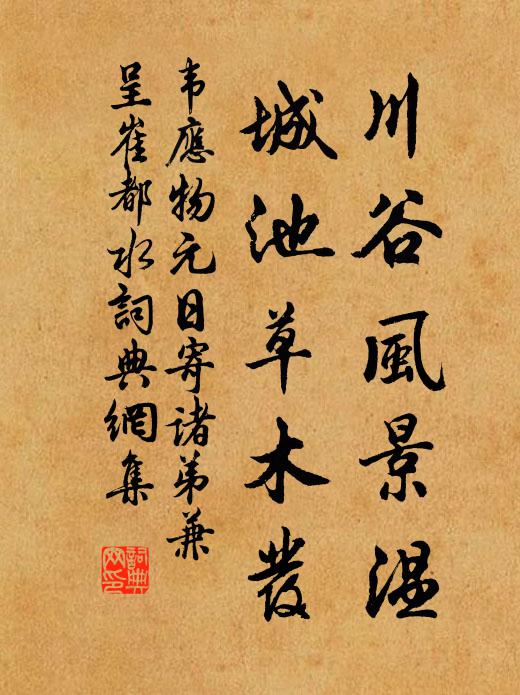 川谷風景温
城池草木發
韦應物元日寄諸弟兼
呈崔都水詞典網集
詞典網印